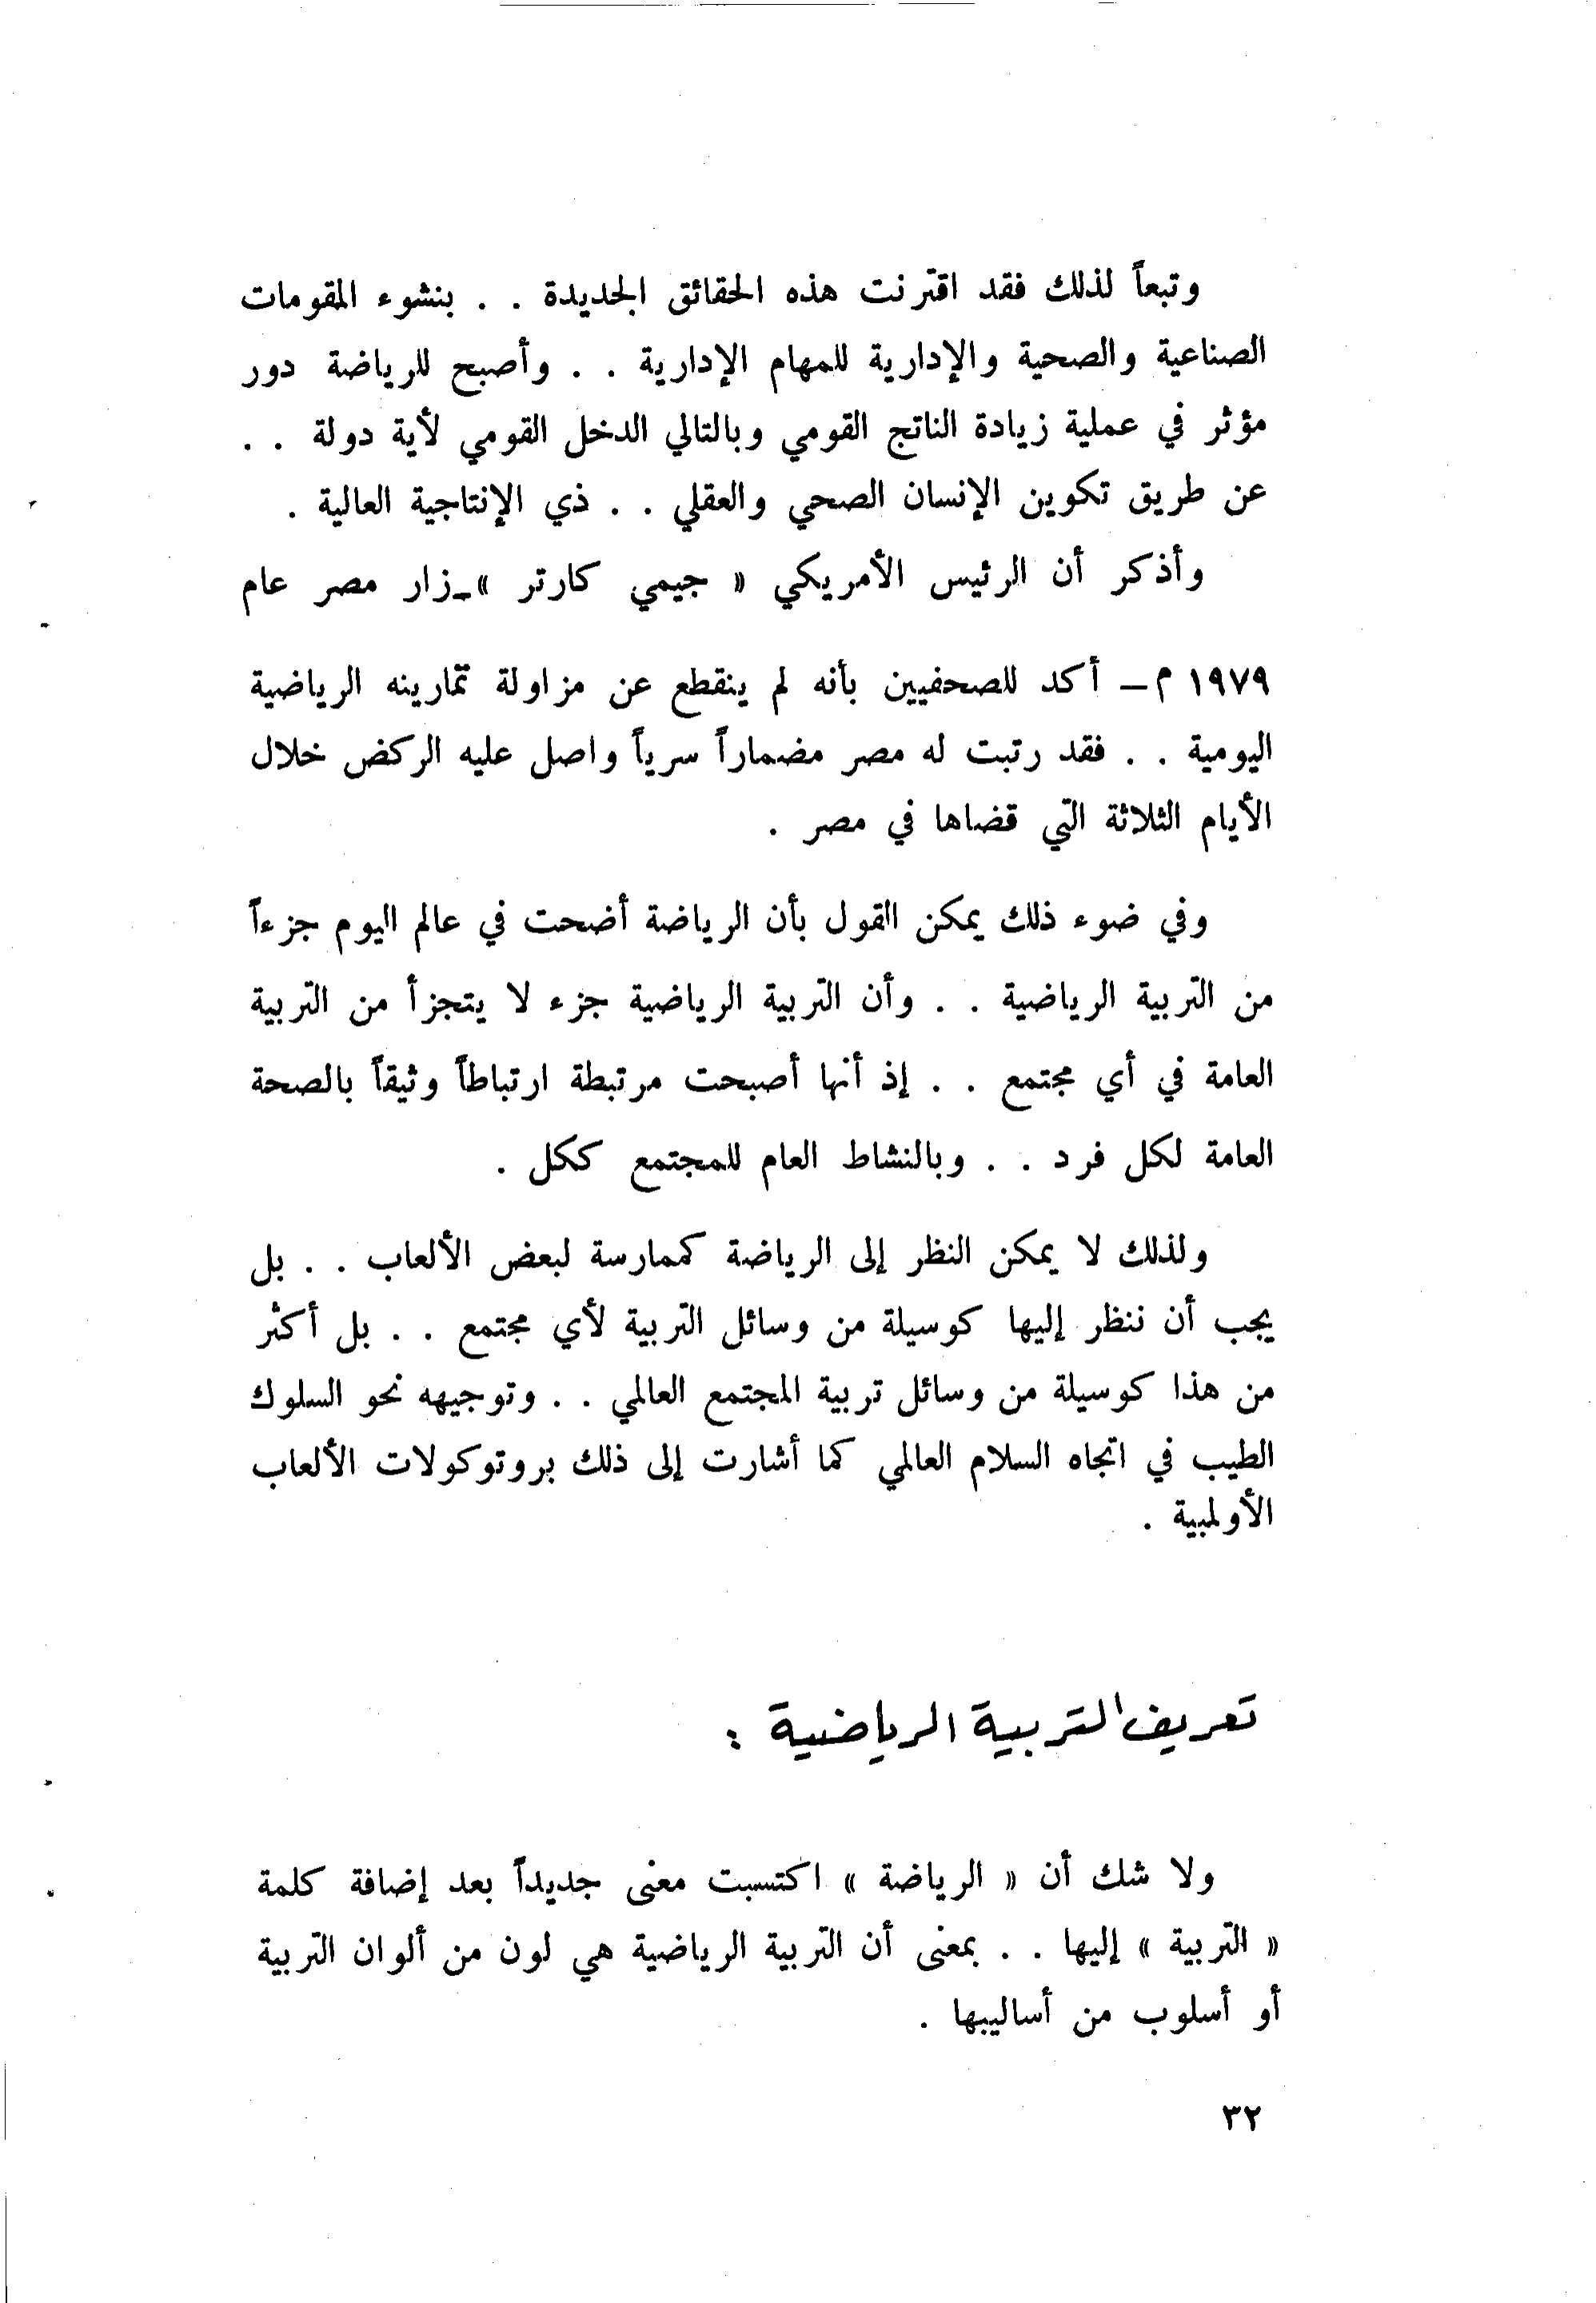 وتبعاً لذلك فقد اقترنت هذه الحقائق الجديدة . . بنشوء المقومات
الصناعية والصحية والإدارية للمهام الإدارية . . وأصبح للرياضة دور
مؤثر في عملية زيادة الناتج القومي وبالتالي الدخل القومي لأية دولة . .
عن طريق تكوين الإنسان الصحي والعقلي . . ذي الإنتاجية العالية .
وأذكر أن الرئيس الأمريكي « جيمي كارتر »ـ زار مصر عام
١٩٧٩ م ـ أكد للصحفيين بأنه لم ينقطع عن مزاولة تمارينه الرياضية
اليومية . . فقد رتبت له مصر مضماراً سرياً واصل عليه الركض خلال
الأيام الثلاثة التي قضاها في مصر .
وفي ضوء ذلك يمكن القول بأن الرياضة أضحت في عالم اليوم جزءاً
من التربية الرياضية . . وأن التربية الرياضية جزء لا يتجزأ من التربية
العامة في أي مجتمع . . إذ أنها أصبحت مرتبطة ارتباطاً وثيقاً بالصحة
العامة لكل فرد . . وبالنشاط العام للمجتمع ككل .
ولذلك لا يمكن النظر إلى الرياضة كممارسة لبعض الألعاب . . بل
يجب أن ننظر إليها كوسيلة من وسائل التربية لأي مجتمع . . بل أكثر
من هذا كوسيلة من وسائل تربية المجتمع العالمي . . وتوجيهه نحو السلوك
الطيب في اتجاه السلام العالمي كما أشارت إلى ذلك بروتوكولات الألعاب
الأولمبية .
تعريف التربية الرياضية :
ولا شك أن « الرياضة » اكتسبت معنى جديداً بعد إضافة كلمة
« التربية » إليها . . بمعنى أن التربية الرياضية هي لون من ألوان التربية
أو أسلوب من أساليبها .
٣٢